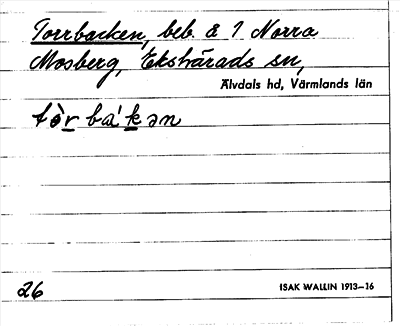 Torrbacken, beb. å 1 Norra
Mosberg, Ekshärads sn,
Älvdals hd, Värmlands län
tòr ba'kən
26
ISAK WALLIN 1913–16